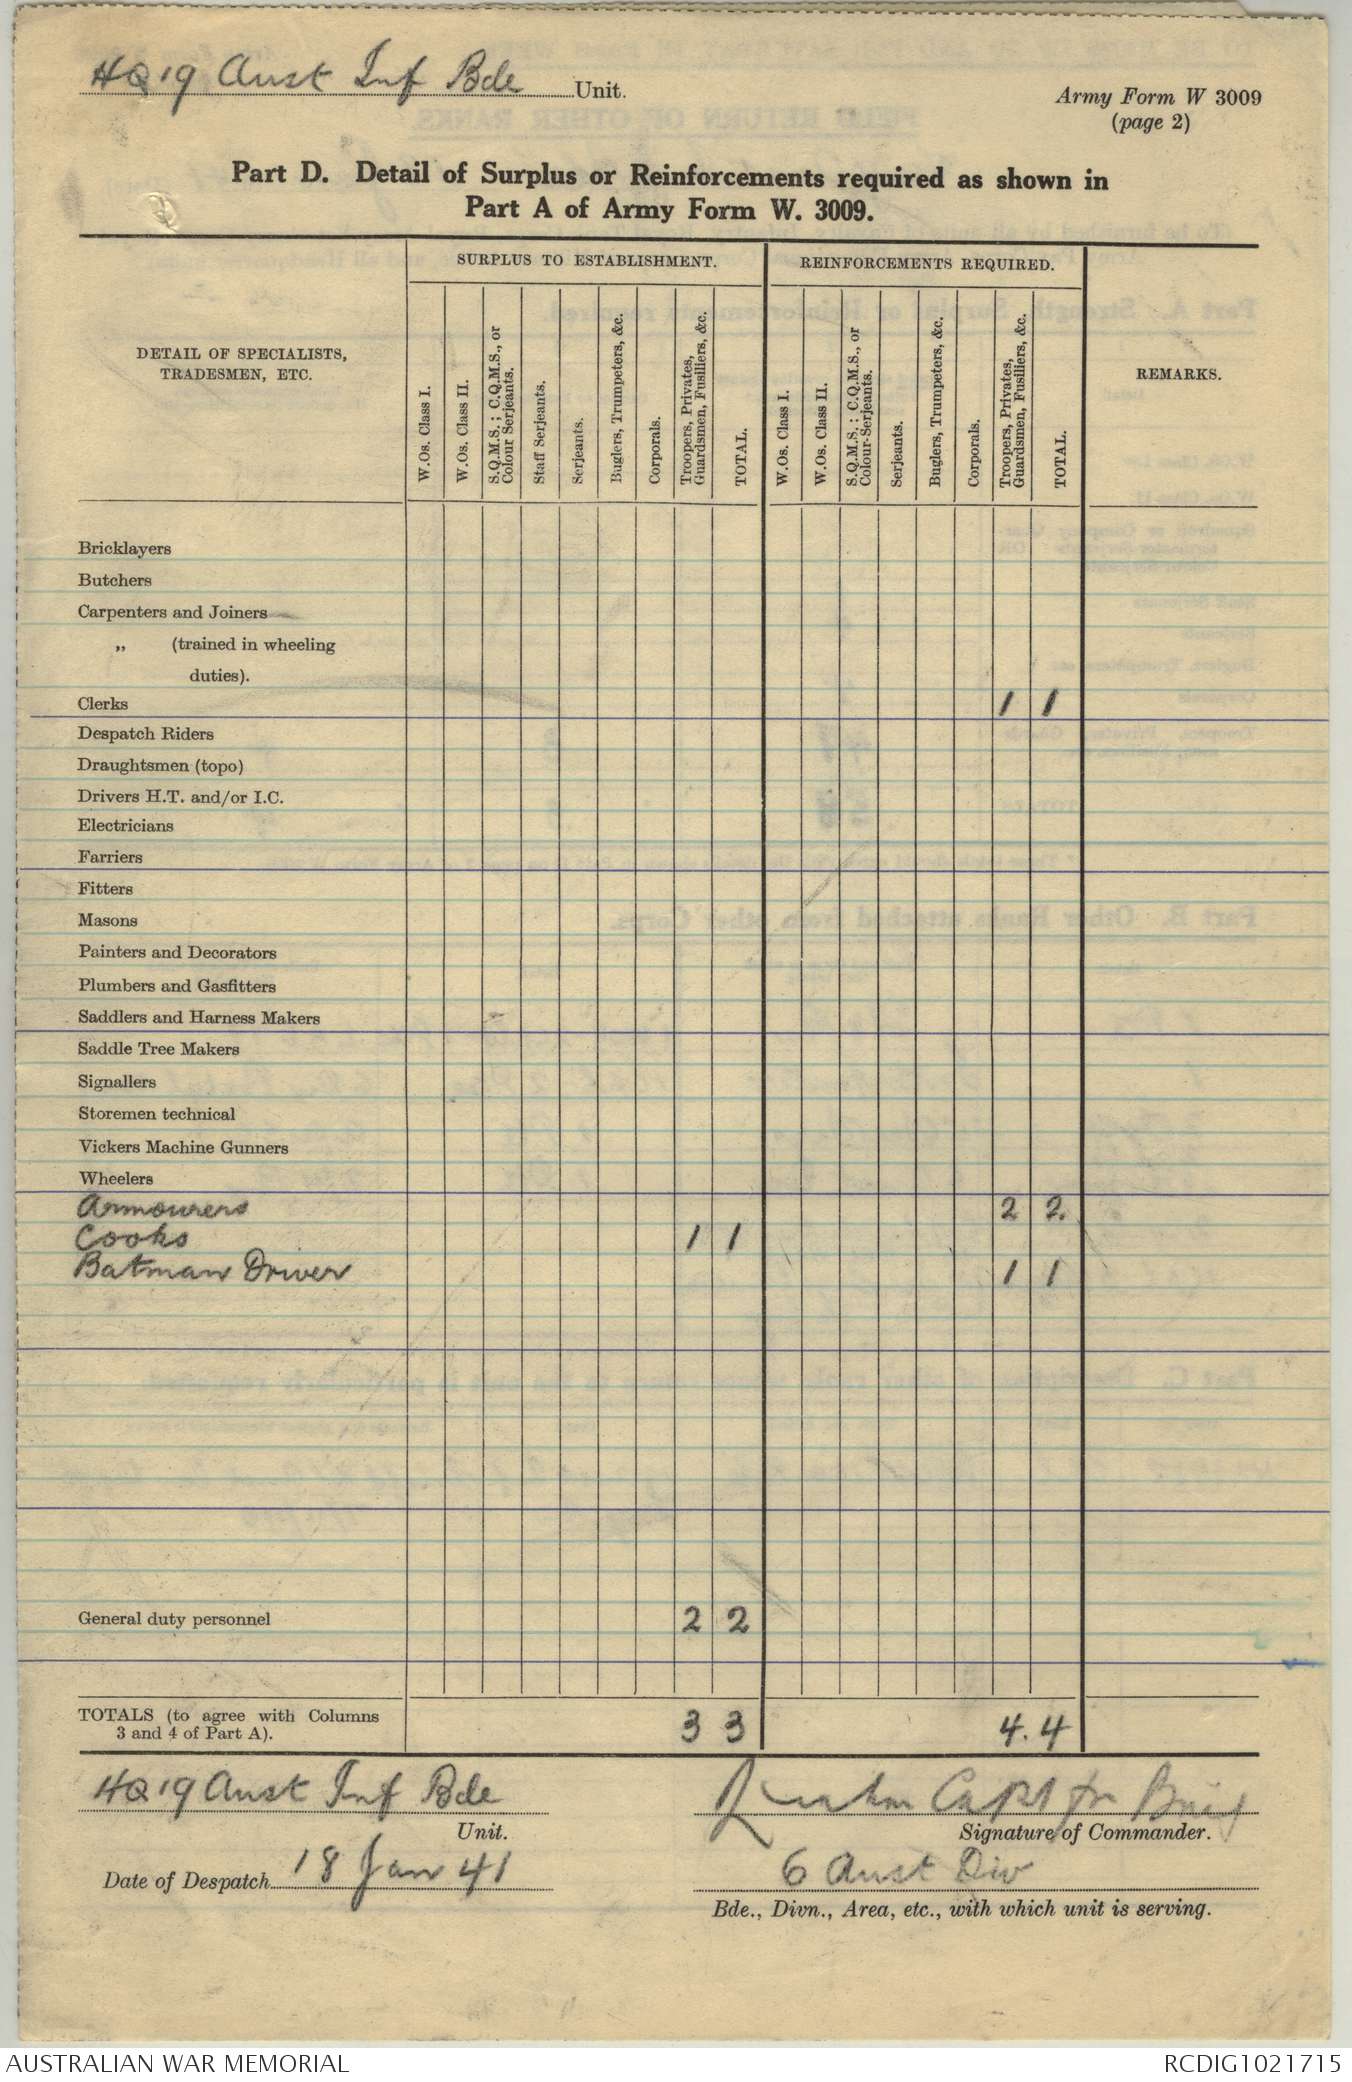 HQ 19 Aust Inf Bde Unit.
Army Form W 3009
(page 2)
Part D. Detail of Surplus or Reinforcements required as shown in
Part A of Army Form W. 3009.
DETAIL OF SPECIALISTS,
TRADESMEN, ETC.
SURPLUS TO ESTABLISHMENT.
W.Os. Class I.
W.Os. Class II.
S.Q.M.S.; C.Q.M.S., or
Colour Serjeants.
Staff Serjeants.
Serjeants.
Buglers, Trumpeters, &c.
Corporals.
Troopers, Privates,
Guardsmen, Fusiliers, &c.
TOTAL.
REINFORCEMENTS REQUIRED.
W.Os. Class I.
W.Os. Class II.
S.Q.M.S.; C.Q.M.S., or
Colour-Serjeants.
Serjeants.
Buglers, Trumpeters, &c.
Corporals.
Troopers, Privates,
Guardsmen, Fusiliers, &c.
TOTAL.
REMARKS.
Bricklayers
Butchers
Carpenters and Joiners
„ (trained in wheeling
duties).
Clerks 1 1
Despatch Riders
Draughtsmen (topo)
Drivers H.T. and/or I.C.
Electricians
Farriers
Fitters
Masons
Painters and Decorators
Plumbers and Gasfitters
Saddlers and Harness Makers
Saddle Tree Makers
Signallers
Storemen technical
Vickers Machine Gunners
Wheelers
Armourers 2 2.
Cooks 1 1
Batman Driver 1 1
General duty personnel 2 2
TOTALS (to agree with Columns
3 and 4 of Part A). 3 3 4. 4
HQ 19 Aust Inf Bde
Unit.
Capt for Brig
Signature of Commander.
Date of Despatch 18 Jan 41
6 Aust Div
Bde., Divn., Area, etc., with which unit is serving.
AUSTRALIAN WAR MEMORIAL
RCDIG1021715